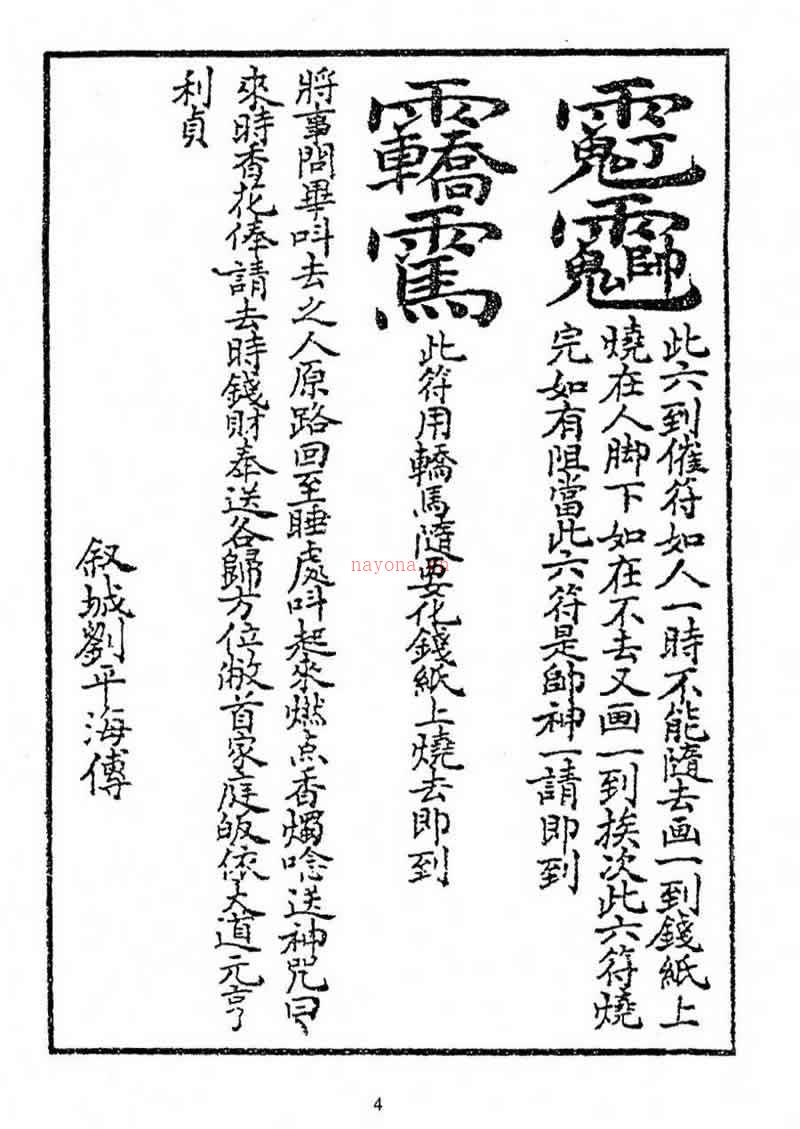 此六到催符如人一時不能隨去画一到錢紙上
燒在人脚下如在不去又画一到挨次此六符燒
完如有阻當此六符是帥神一請即到
此符用轎馬隨要化錢紙上燒去即到
將事問畢叫去之人原路回至睡處叫起來燃点香燭唸送神咒曰
來時香花俸請去時錢財奉送各歸方位散首家庭皈依大道元亨
利貞
叙城劉平海傳
nayona.cn
4